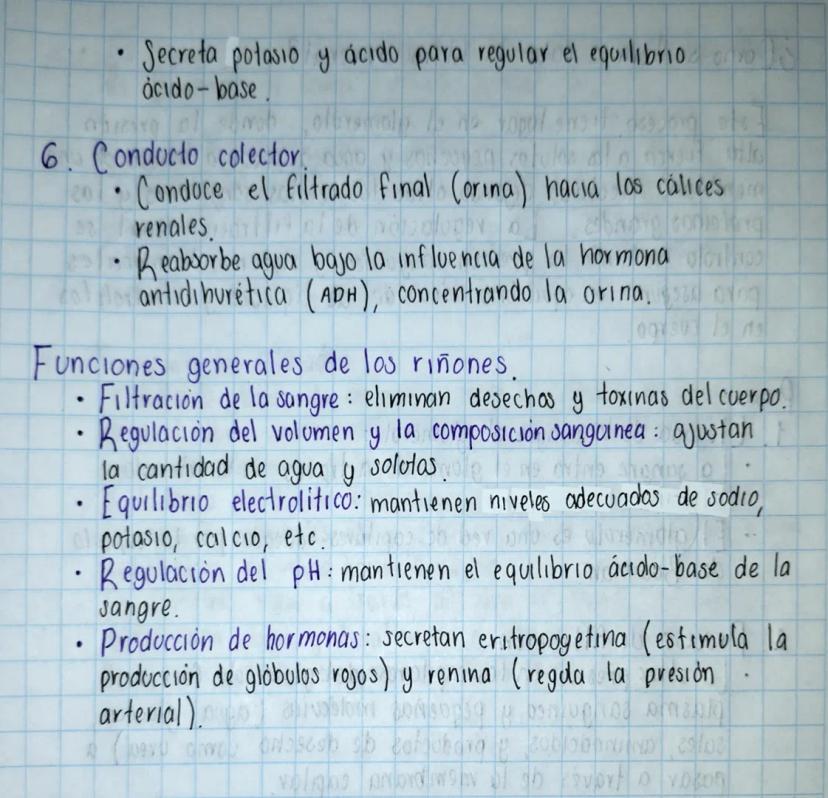 • Secreta potasio y ácido para regular el equilibrio
ácido-base.
6. Conducto colector.
• Conduce el filtrado final (orina) hacia los cálices
renales.
• Reabsorbe agua bajo la influencia de la hormona
antidihurética (ADH), concentrando la orina.
Funciones generales de los riñones.
• Filtración de la sangre: eliminan desechos y toxinas del cuerpo.
• Regulación del volumen y la composición sanguinea: ajustan
la cantidad de agua y solutos.
• Equilibrio electrolítico: mantienen niveles adecuados de sodio,
potasio, calcio, etc.
• Regulación del pH: mantienen el equilibrio ácido-base de la
sangre.
• Producción de hormonas: secretan eritropoyetina (estimula la
producción de glóbulos rojos) y renina (regula la presión
arterial).